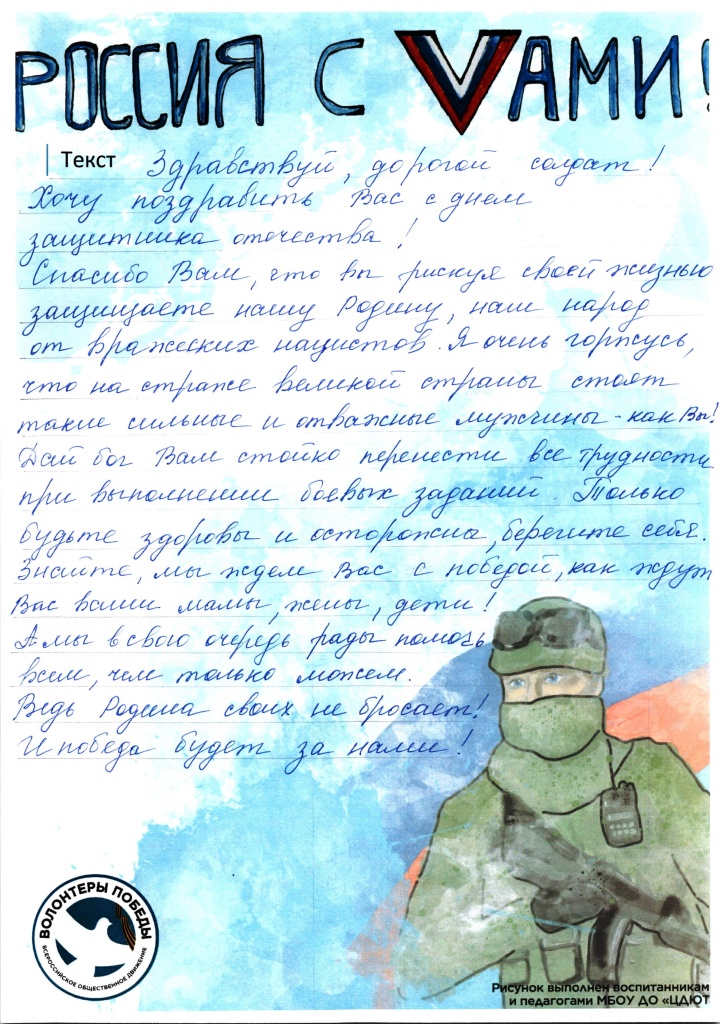 РОССИЯ С VАМИ!
Текст Здравствуй, дорогой солдат!
Хочу поздравить Вас с днем
защитника отечества!
Спасибо Вам, что вы рискуя своей жизнью
защищаете нашу Родину, наш народ
от вражеских нацистов. Я очень горжусь,
что на страже великой страны стоят
такие сильные и отважные мужчины - как Вы!
Дай бог Вам стойко перенести все трудности
при выполнении боевых заданий. Только
будьте здоровы и осторожны, берегите себя.
Знайте, мы ждем Вас с победой, как ждут
Вас ваши мамы, жены, дети!
А мы в свою очередь рады помочь
всем, чем только можем.
Ведь Родина своих не бросает!
И победа будет за нами!
ВОЛОНТЕРЫ ПОБЕДЫ
ВСЕРОССИЙСКОЕ ОБЩЕСТВЕННОЕ ДВИЖЕНИЕ
Рисунок выполнен воспитанникам
и педагогами МБОУ ДО «ЦДЮТ